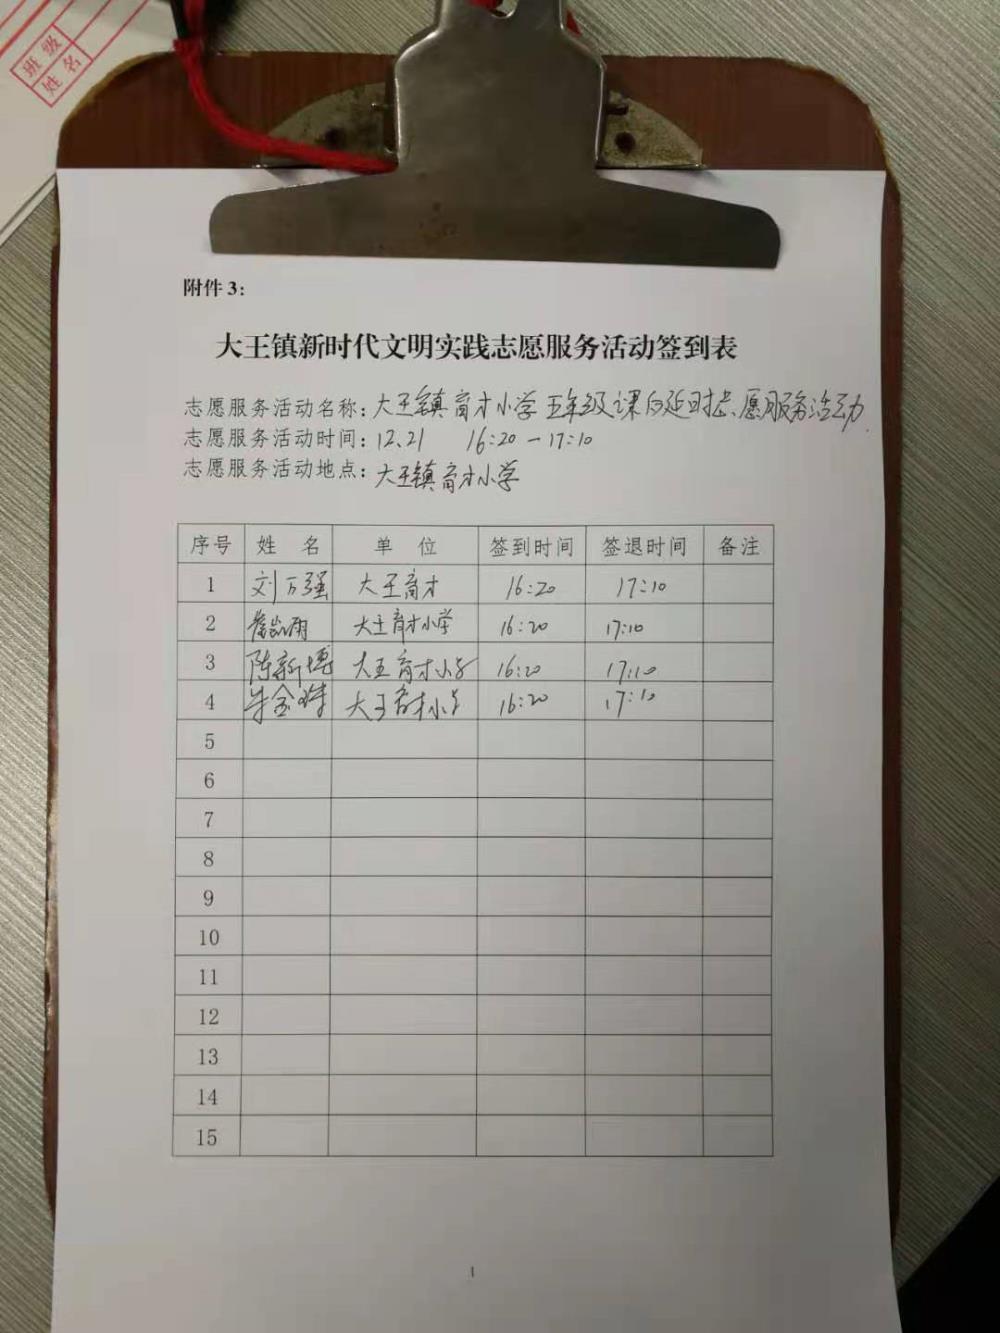 班级
姓名
附件 3：
大王镇新时代文明实践志愿服务活动签到表
志愿服务活动名称：大王镇育才小学五年级课后延时志愿服务活动
志愿服务活动时间：12.21 16:20-17:10
志愿服务活动地点：大王镇育才小学
序号 姓 名 单 位 签到时间 签退时间 备注
1 刘万强 大王育才 16:20 17:10
2 大王育才小学 16:20 17:10
3 陈新博 大王育才小学 16:20 17:10
4 朱金 大王育才小学 16:20 17:10
5
6
7
8
9
10
11
12
13
14
15
1